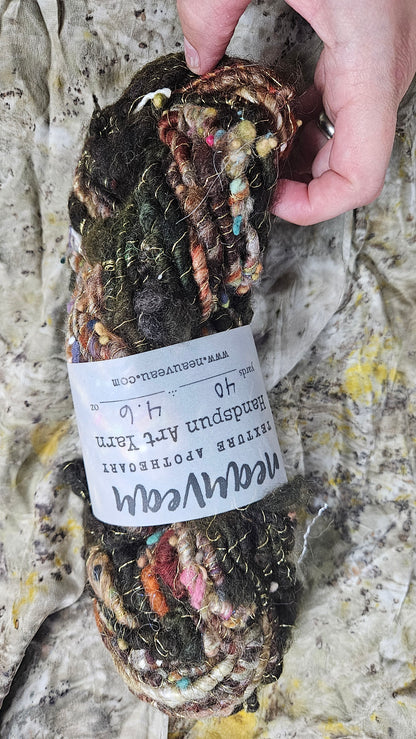 neauveau
TEXTURE APOTHECARY
Handspun Art Yarn
40 yards .:. 4.6 oz
www.neauveau.com